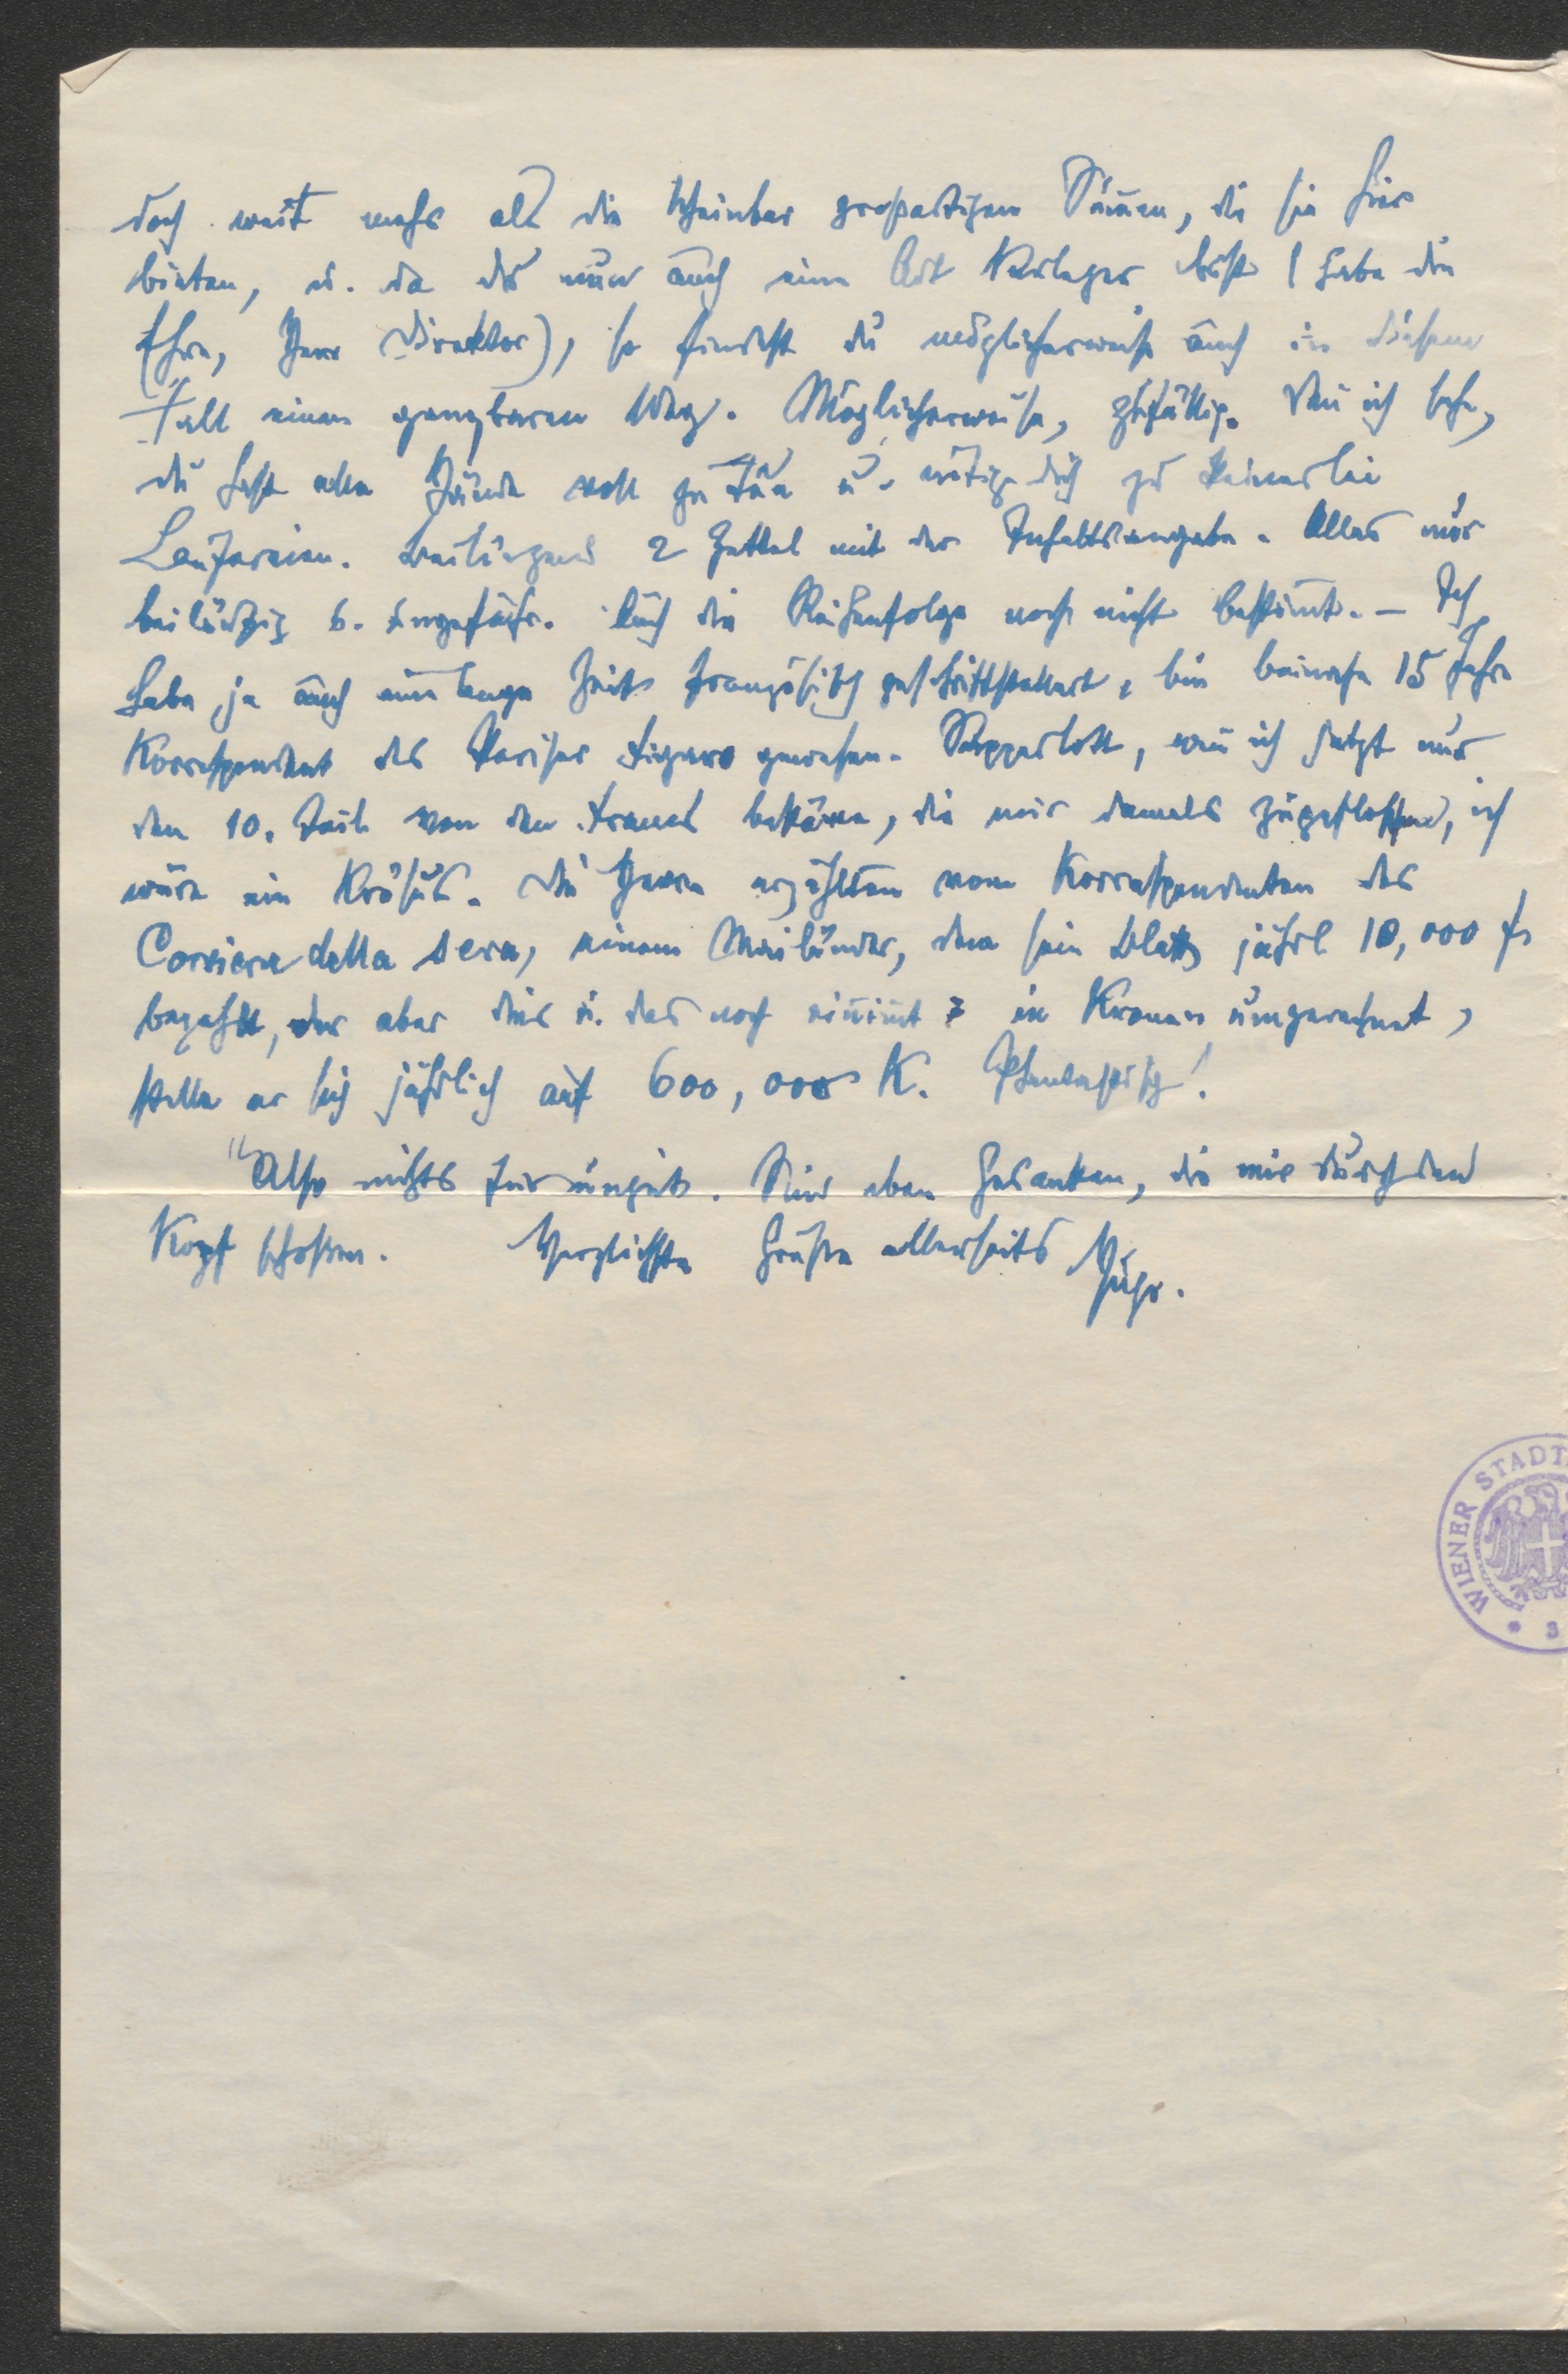 doch weit mehr als die scheinbar großartigen Summen, die sie hier
bieten, u. da du nun auch eine Art Verleger bist (habe die
Ehre, Herr Direktor), so findest du möglicherweise auch in diesem
Fall einen gangbaren Weg. Möglicherweise, zufällig. Denn ich sehe,
du hast alle Hände voll zu tun u. nötige dich zu keinerlei
Laufereien. Beiliegend 2 Zettel mit der Inhaltsangabe. Alles nur
beiläufig u. ungefähr. Auch die Reihenfolge noch nicht bestimmt. – Ich
habe ja auch eine lange Zeit französisch geschriftstellert, bin beinahe 15 Jahre
Korrespondent des Pariser Figaro gewesen. Sapperlott, wenn ich jetzt nur
den 10. Teil von den Francs bekäme, die mir damals zugeflossen, ich
wäre ein Krösus. Die Herren erzählten vom Korrespondenten des
Corriere della sera, einem Mailänder, dem sein Blatt jährl 10,000 fr
bezahlt, der aber dies u. das noch einnimmt; in Kronen umgerechnet,
stelle er sich jährlich auf 600,000 K. Phantastisch!
Also nichts für ungut. Nur eben Gedanken, die mir durch den
Kopf schossen. Herzlichste Grüße allerseits
WIENER STADT